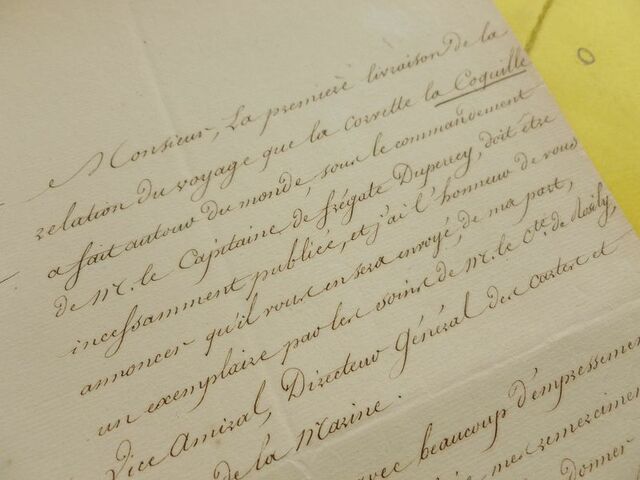 Monsieur, La première livraison de la
relation du voyage que la corvette la Coquille
a fait autour du monde, sous le commandement
de Mr. le Capitaine de frégate Duperrey, doit être
incessamment publiée, et j'ai l'honneur de vous
annoncer qu'il vous en sera envoyé, de ma part,
un exemplaire par les soins de Mr. le Cte. de Rosily,
Vice Amiral, Directeur Général des cartes et
de la Marine.
avec beaucoup d'empressemen
mes remercimen
donner